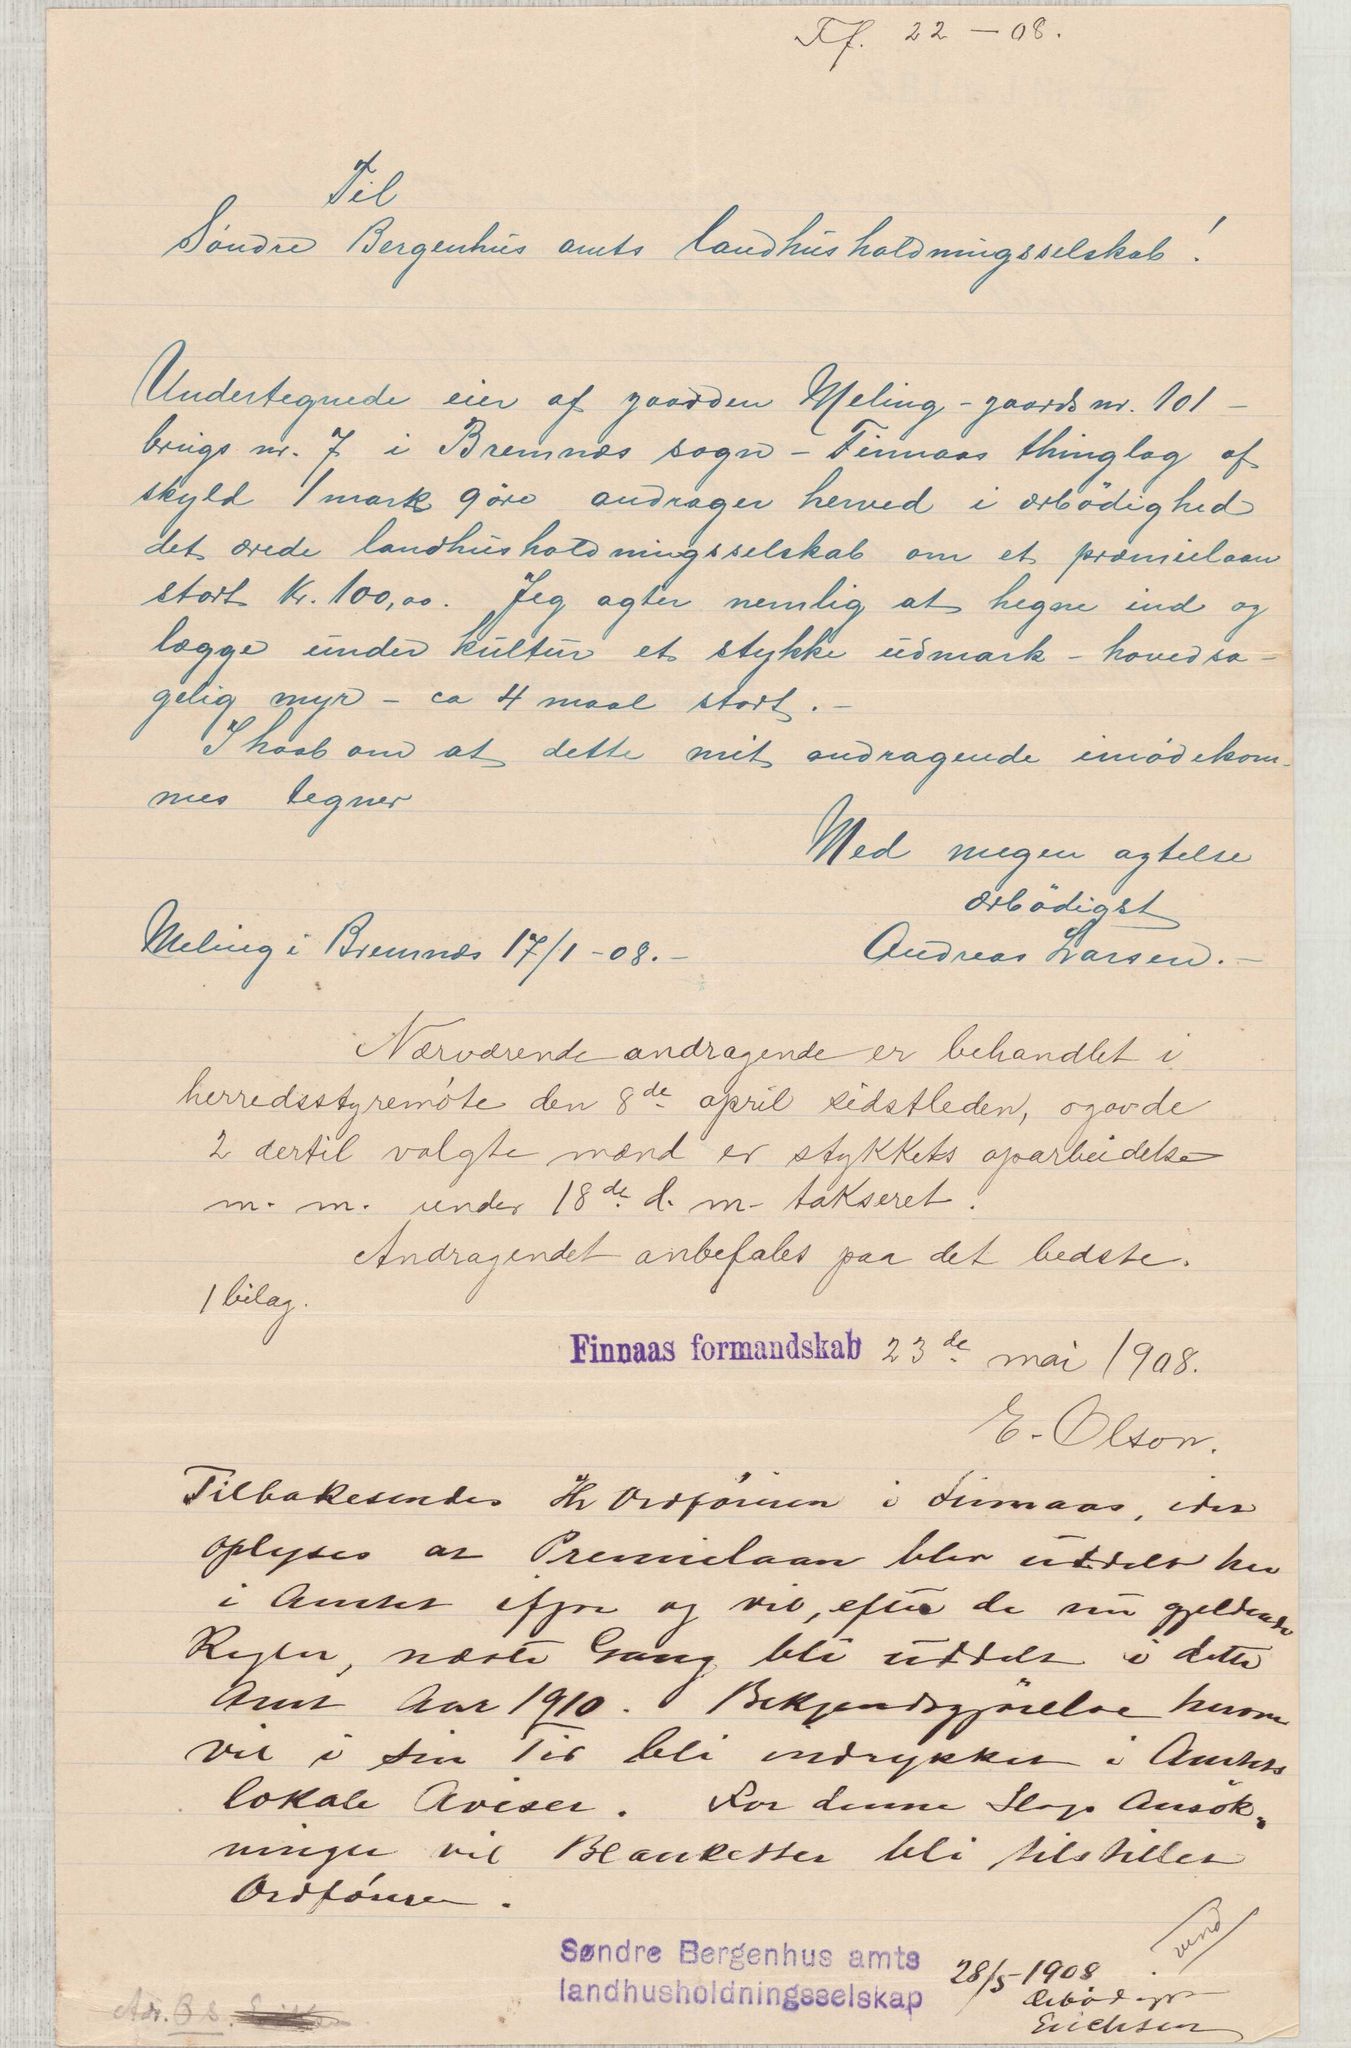 Ff. 22 — 08.
Til
Søndre Bergenhus amts landhusholdningsselskab!
Undertegnede eier af gaarden Meling - gaards nr. 101 -
brugs nr. 7 i Bremnæs sogn - Finnaas thinglag af
skyld 1 mark 9 öre andrager herved i ærbödighed
det ærede landhusholdningsselskab om et præmielaan
stort Kr. 100,00. Jeg agter nemlig at hegne ind og
lægge under kultur et stykke udmark - hovedsa-
gelig myr - ca 4 maal stort. -
I haab om at dette mit andragende imödekom-
mes tegner
Med megen agtelse
ærbödigst
Meling i Bremnæs 17/1 - 08. -
Andreas Larsen. -
Nærværende andragende er behandlet i
herredsstyremöte den 8de april sidstleden, og av de
2 dertil valgte mænd er stykkets oparbeidelse
m. m. under 18de d. m. takseret.
Andragendet anbefales paa det bedste.
1 bilag.
Finnaas formandskab 23de mai 1908.
E. Olson.
Tilbakesendes Hr Ordföreren i Finnaas, idet
oplyses at Premielaan blev uddelt her
i Amtet ifjor og vil, efter de nu gjeldende
Regler, næste Gang bli uddelt i dette
Amt Aar 1910. Bekjendtgjörelse herom
vil i sin Tid bli indrykket i Amtets
lokale Aviser. For denne Slags Ansök-
ninger vil Blanketter bli tilstillet
Ordföreren.
vend
Søndre Bergenhus amts
landhusholdningsselskap
28/5-1908
Ærbödigst
Erichsen
Adr. O. S.